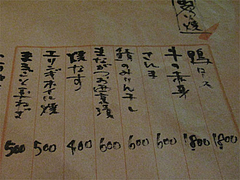 鴨ロース 1800
牛の赤身 1800
さんま 600
鯖のみりん干し 600
まながつお西京漬 600
焼なす 400
エリンギホイル焼 500
まるごと玉ねぎ 500